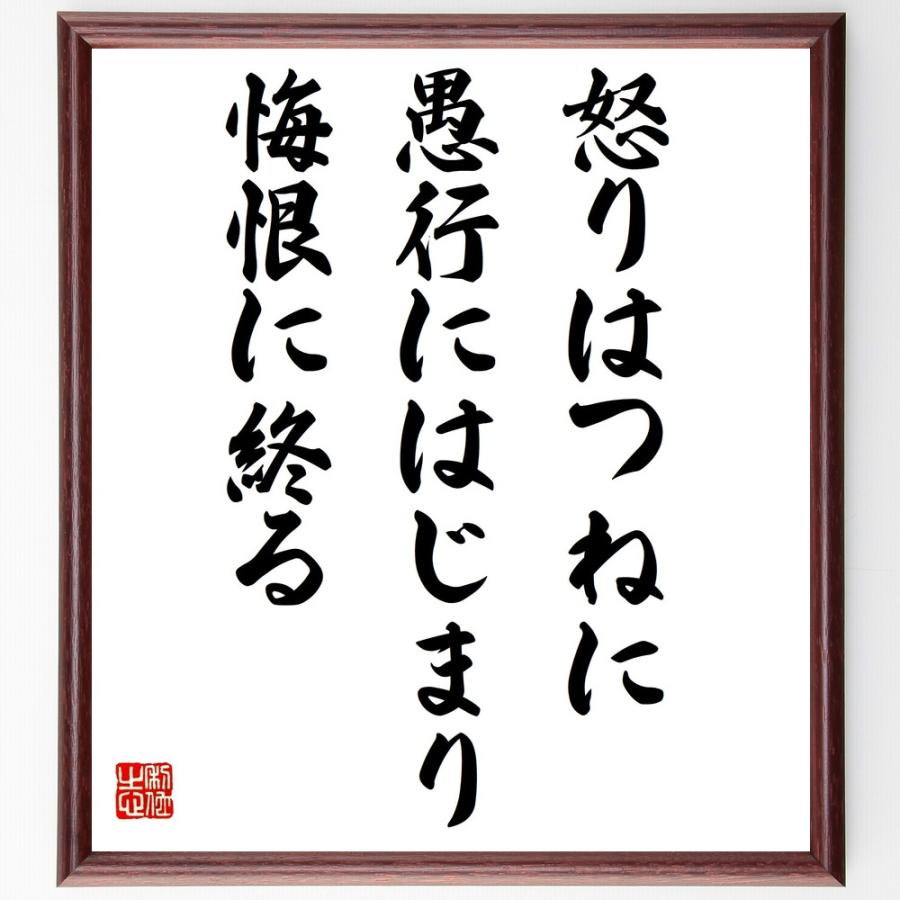 怒りはつねに
愚行にはじまり
悔恨に終る